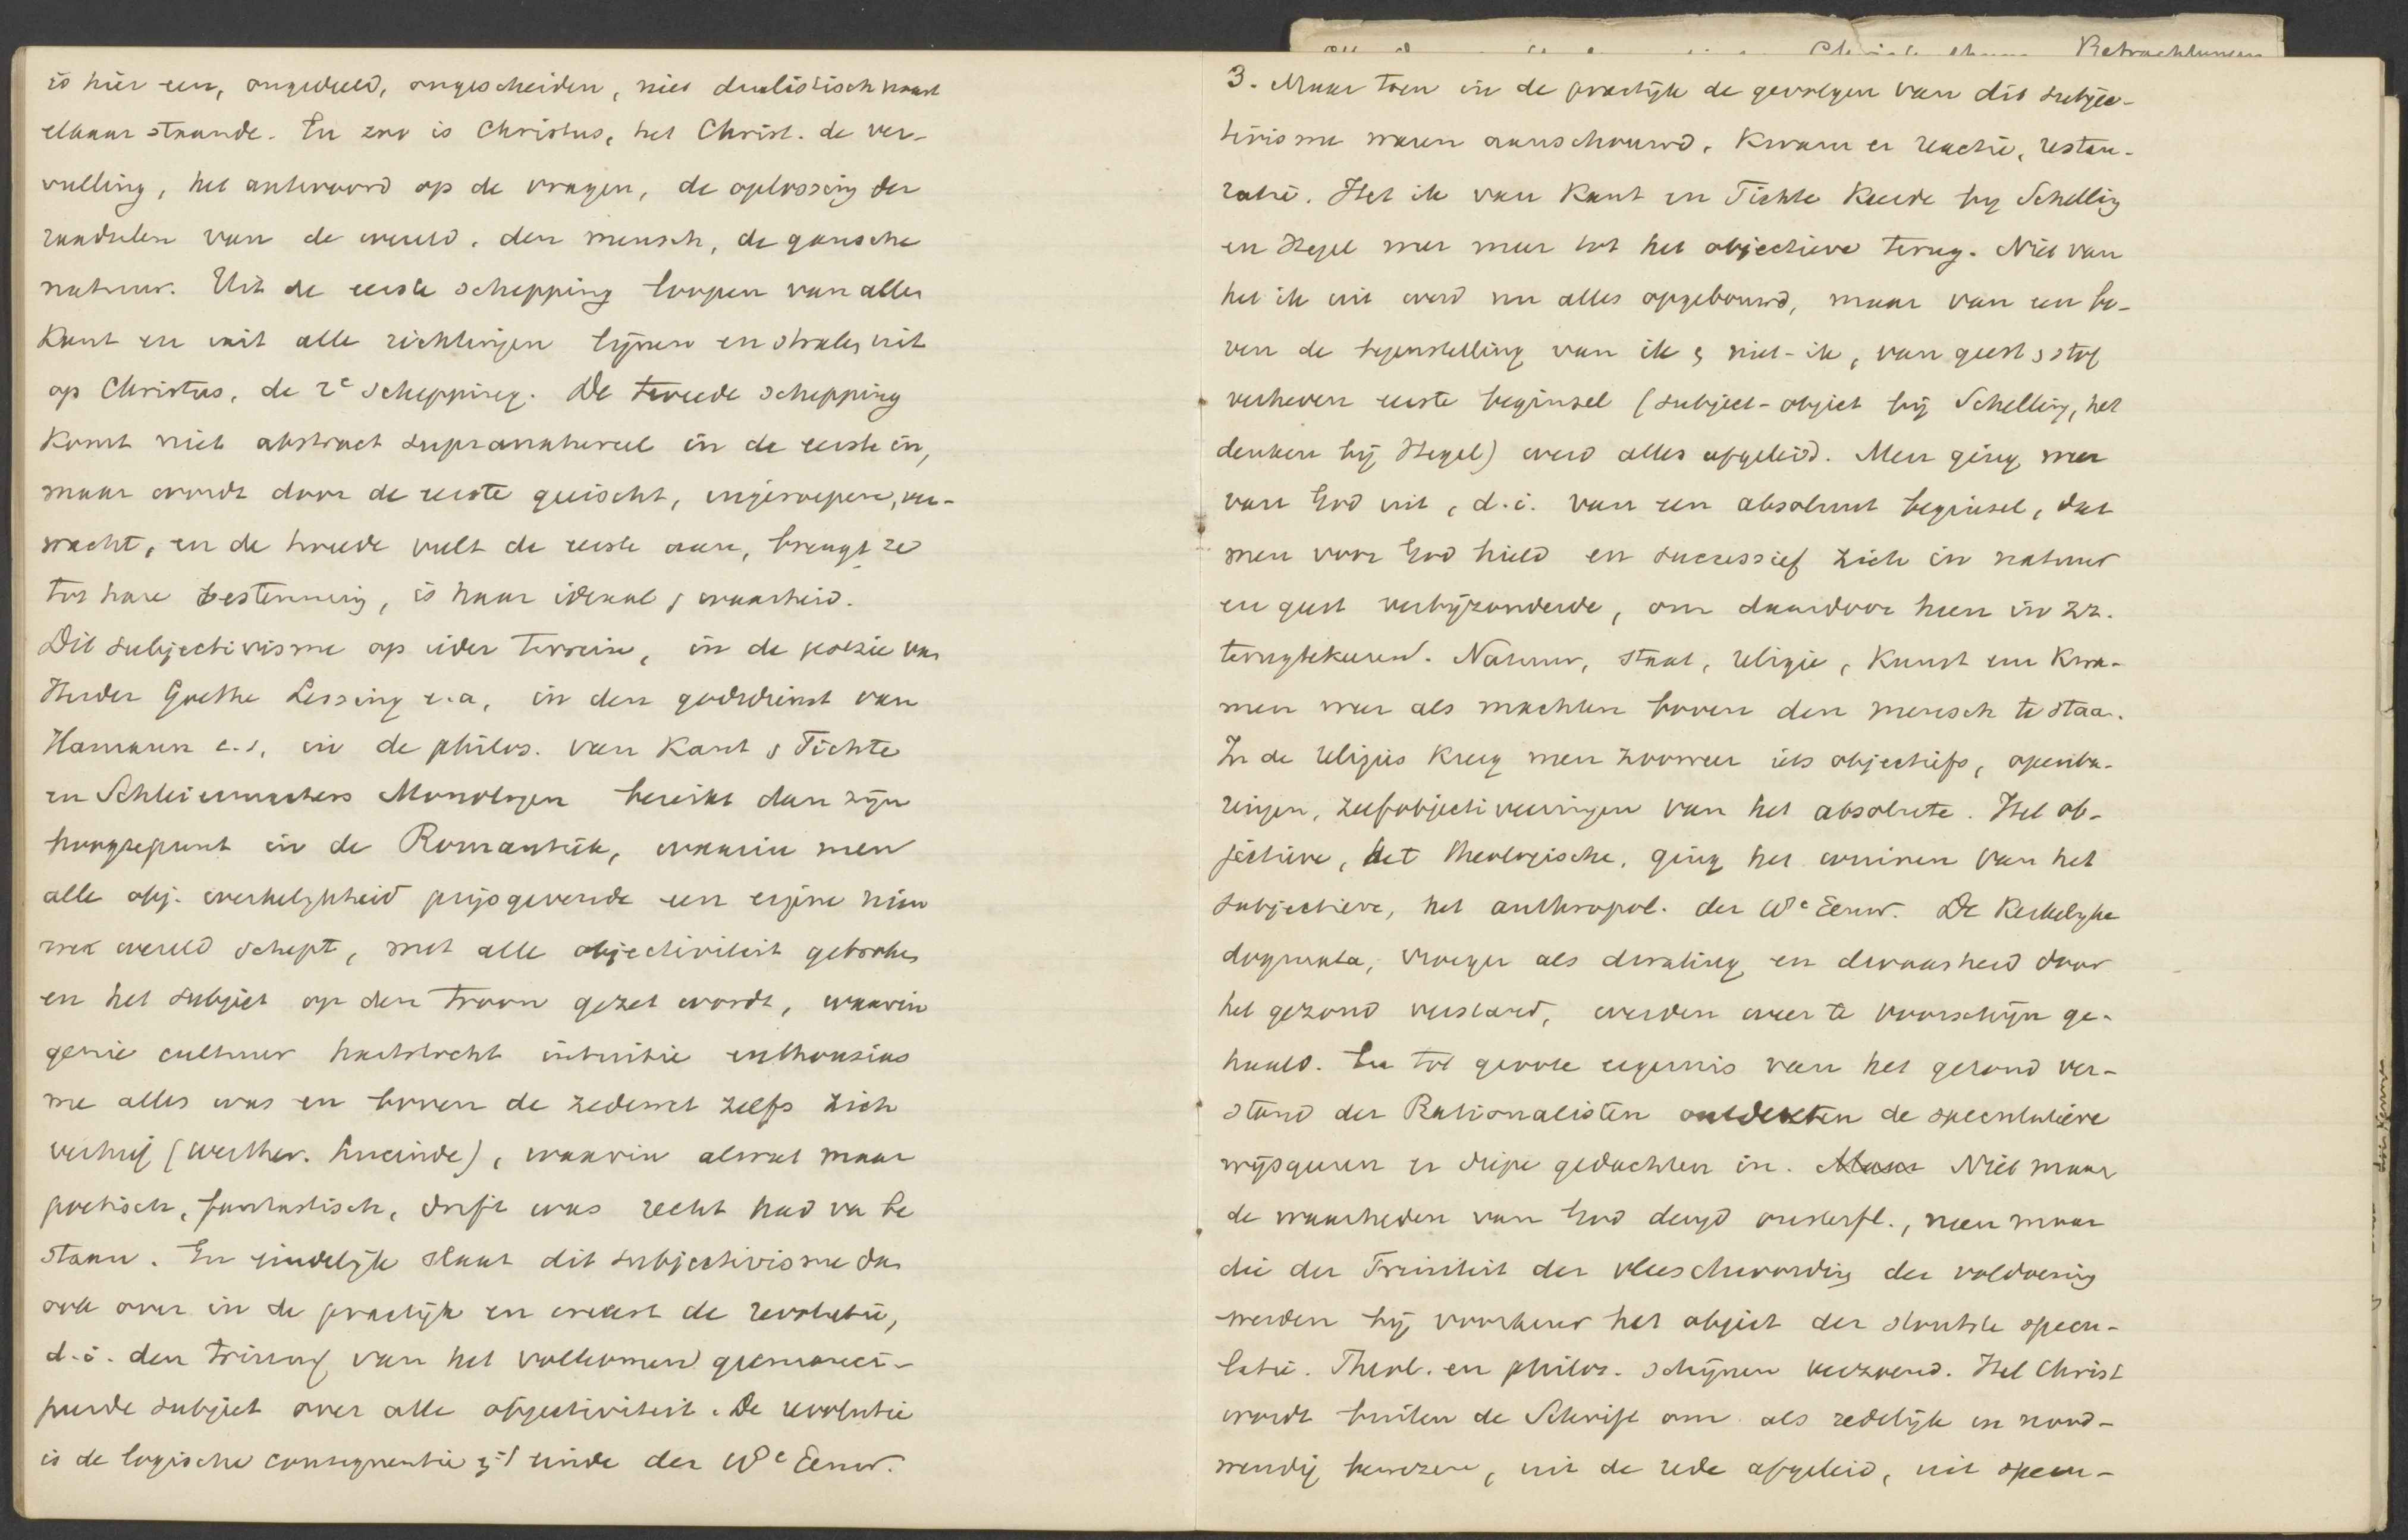 is hier een, ongedeeld, ongescheiden, niet dualistisch naast
elkaar staande. En zoo is Christus, het Christ. de ver-
vulling, het antwoord op de vragen, de oplossing der
raadselen van de wereld, den mensch, de gansche
natuur. Uit de eerste schepping loopen van alle
kant en uit alle richtingen lijnen en stralen uit
op Christus, de 2e schepping. De tweede schepping
komt niet abstract supranatureel in de eerste in,
maar wordt door de eerste geëischt, ingeroepen, ver-
wacht, en de tweede vult de eerste aan, brengt ze
tot hare bestemming, is haar ideaal & waarheid.
Dit subjectivisme op ieder terrein, in de poëzie van
Herder Goethe Lessing e.a, in den godsdienst van
Hamann e.s, in de philos. van Kant & Fichte
en Schleiermachers Monologen bereikt dan zijn
hoogtepunt in de Romantiek, waarin men
alle obj. werkelijkheid prijsgevende een eigene nieu
we wereld schept, met alle objectiviteit gebroken
en het subject op den troon gezet wordt, waarin
genie cultuur hartstocht intuitie enthousias
me alles was en boven de zedewet zelfs zich
verhief (Werther. Lucinde), waarin alwat maar
poetisch, fantastisch, drift was recht had van be
staan. En eindelijk slaat dit subjectivisme dan
ook over in de practijk en wekt de revolutie,
d.i. den triumf van het volkomen geemanci-
peerde subject over alle objectiviteit. De revolutie
is de logische consequentie & 't einde der 18e Eeuw.
3. Maar toen in de practijk de gevolgen van dit subjec-
tivisme waren aanschouwd, kwam er reactie, restau-
ratie. Het ik van Kant en Fichte keerde bij Schelling
en Hegel weer meer tot het objectieve terug. Niet van
het ik uit werd nu alles opgebouwd, maar van een bo-
ven de tegenstelling van ik & niet-ik, van geest & stof
verheven eerste beginsel (subject-object bij Schelling, het
denken bij Hegel) werd alles afgeleid. Men ging weer
van God uit, d.i. van een absoluut beginsel, dat
men voor God hield en successief zich in natuur
en geest verbijzonderde, om daardoor heen in zz.
terugtekeeren. Natuur, staat, religie, kunst enz kwa-
men weer als machten boven den mensch te staan.
In de religie kreeg men zoowaar iets objectiefs, openba-
ringen, zelfobjectiveeringen van het absolute. Het ob-
jectieve, het theologische, ging het winnen van het
subjectieve, het anthropol. der 18e Eeuw. De kerkelijke
dogmata, vroeger als dwaling en dwaasheid door
het gezond verstand, werden weer te voorschijn ge-
haald. En tot groote ergernis van het gezond ver-
stand der Rationalisten ontdekten de speculatieve
wijsgeeren er diepe gedachten in. Maar Niet maar
de waarheden van God deugd onsterfl., neen maar
die der Triniteit der vleeschwording der voldoening
werden bij voorkeur het object der stoutste specu-
latie. Theol. en philos. schijnen verzoend. Het Christ
wordt buiten de Schrift om als redelijk en nood-
wendig bewezen, uit de rede afgeleid, uit specu-